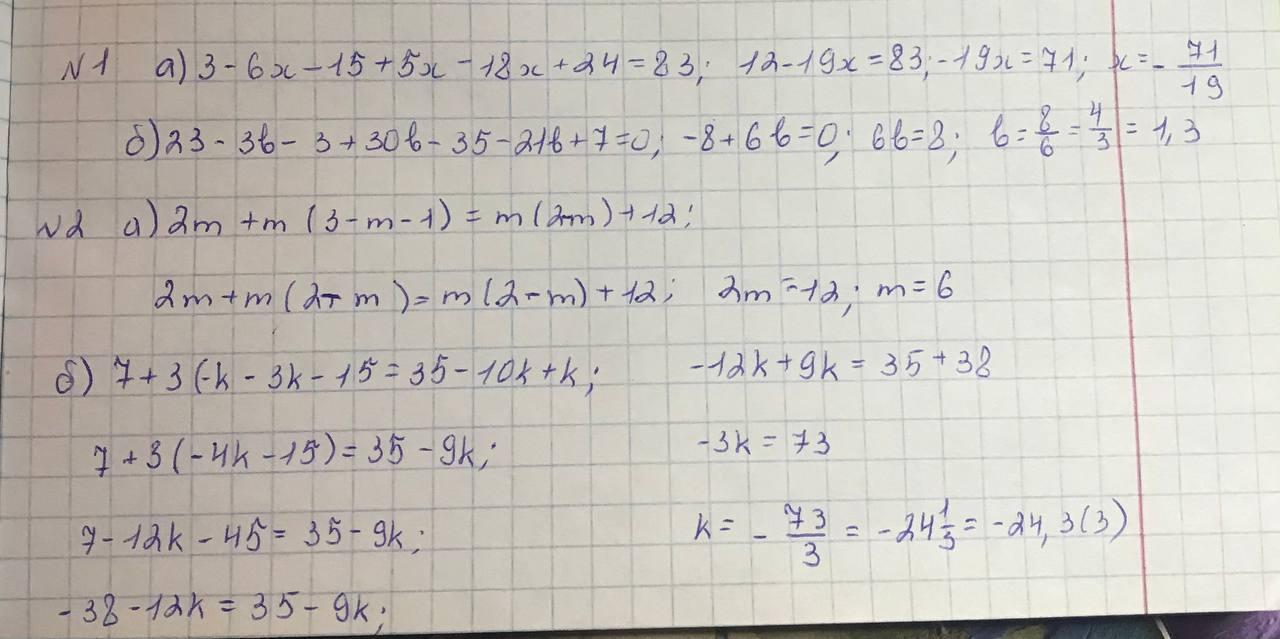 №1 а) 3 - 6x - 15 + 5x - 18x + 24 = 83; 12 - 19x = 83; -19x = 71; x = - 71/19
б) 23 - 3b - 3 + 30b - 35 - 21b + 7 = 0; -8 + 6b = 0; 6b = 8; b = 8/6 = 4/3 = 1,3
№2 а) 2m + m (3 - m - 1) = m (2-m) + 12;
2m + m (2 - m) = m (2 - m) + 12; 2m = 12; m = 6
б) 7 + 3 (-k - 3k - 15 = 35 - 10k + k; -12k + 9k = 35 + 38
7 + 3 (-4k - 15) = 35 - 9k; -3k = 73
7 - 12k - 45 = 35 - 9k; k = - 73/3 = -24 1/3 = -24,3(3)
-38 - 12k = 35 - 9k;